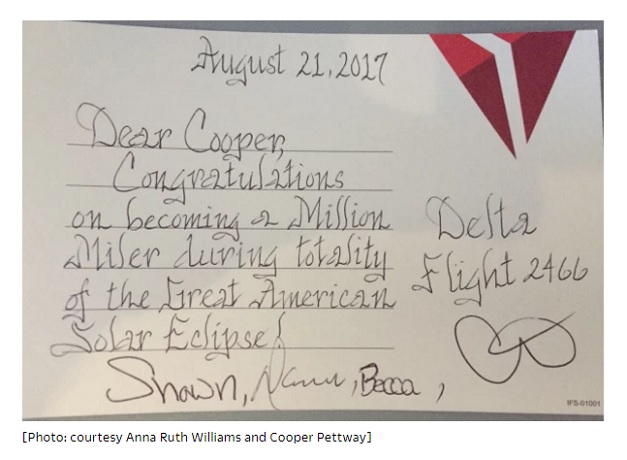 August 21, 2017
Dear Cooper,
Congratulations
on becoming a Million
Miler during totality
of the Great American
Solar Eclipse!
Shawn, Becca,
Delta
Flight 2466
IFS-01001
[Photo: courtesy Anna Ruth Williams and Cooper Pettway]